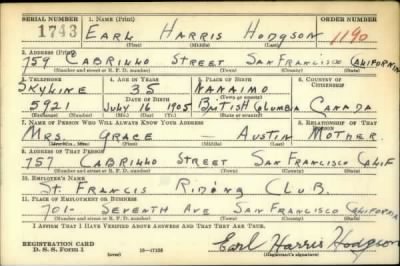 SERIAL NUMBER 1. NAME (Print) ORDER NUMBER
1743 EARL HARRIS HODGSON 1190
(First) (Middle) (Last)
2. ADDRESS (Print)
759 CABRILLO STREET SAN FRANCISCO CALIFORNIA
(Number and street or R. F. D. number) (Town) (County) (State)
3. TELEPHONE 4. AGE IN YEARS 5. PLACE OF BIRTH 6. COUNTRY OF CITIZENSHIP
SKYLINE 35 NANAIMO
DATE OF BIRTH
5921 JULY 16 1905 BRITISH COLUMBIA CANADA
(Mo.) (Day) (Yr.) (State or country)
7. NAME OF PERSON WHO WILL ALWAYS KNOW YOUR ADDRESS 8. RELATIONSHIP OF THAT PERSON
MRS. GRACE — AUSTIN MOTHER.
(Mr., Mrs., Miss) (First) (Middle) (Last)
9. ADDRESS OF THAT PERSON
757 CABRILLO STREET SAN FRANCISCO CALIF
(Number and street or R. F. D. number) (Town) (County) (State)
10. EMPLOYER'S NAME
ST. FRANCIS RIDING CLUB.
11. PLACE OF EMPLOYMENT OR BUSINESS
701- SEVENTH AVE SAN FRANCISCO CALIFORNIA
(Number and street or R. F. D. number) (Town) (County) (State)
I AFFIRM THAT I HAVE VERIFIED ABOVE ANSWERS AND THAT THEY ARE TRUE.
REGISTRATION CARD
D. S. S. Form 1 (over) 16—17105 Earl Harris Hodgson
(Registrant's signature)